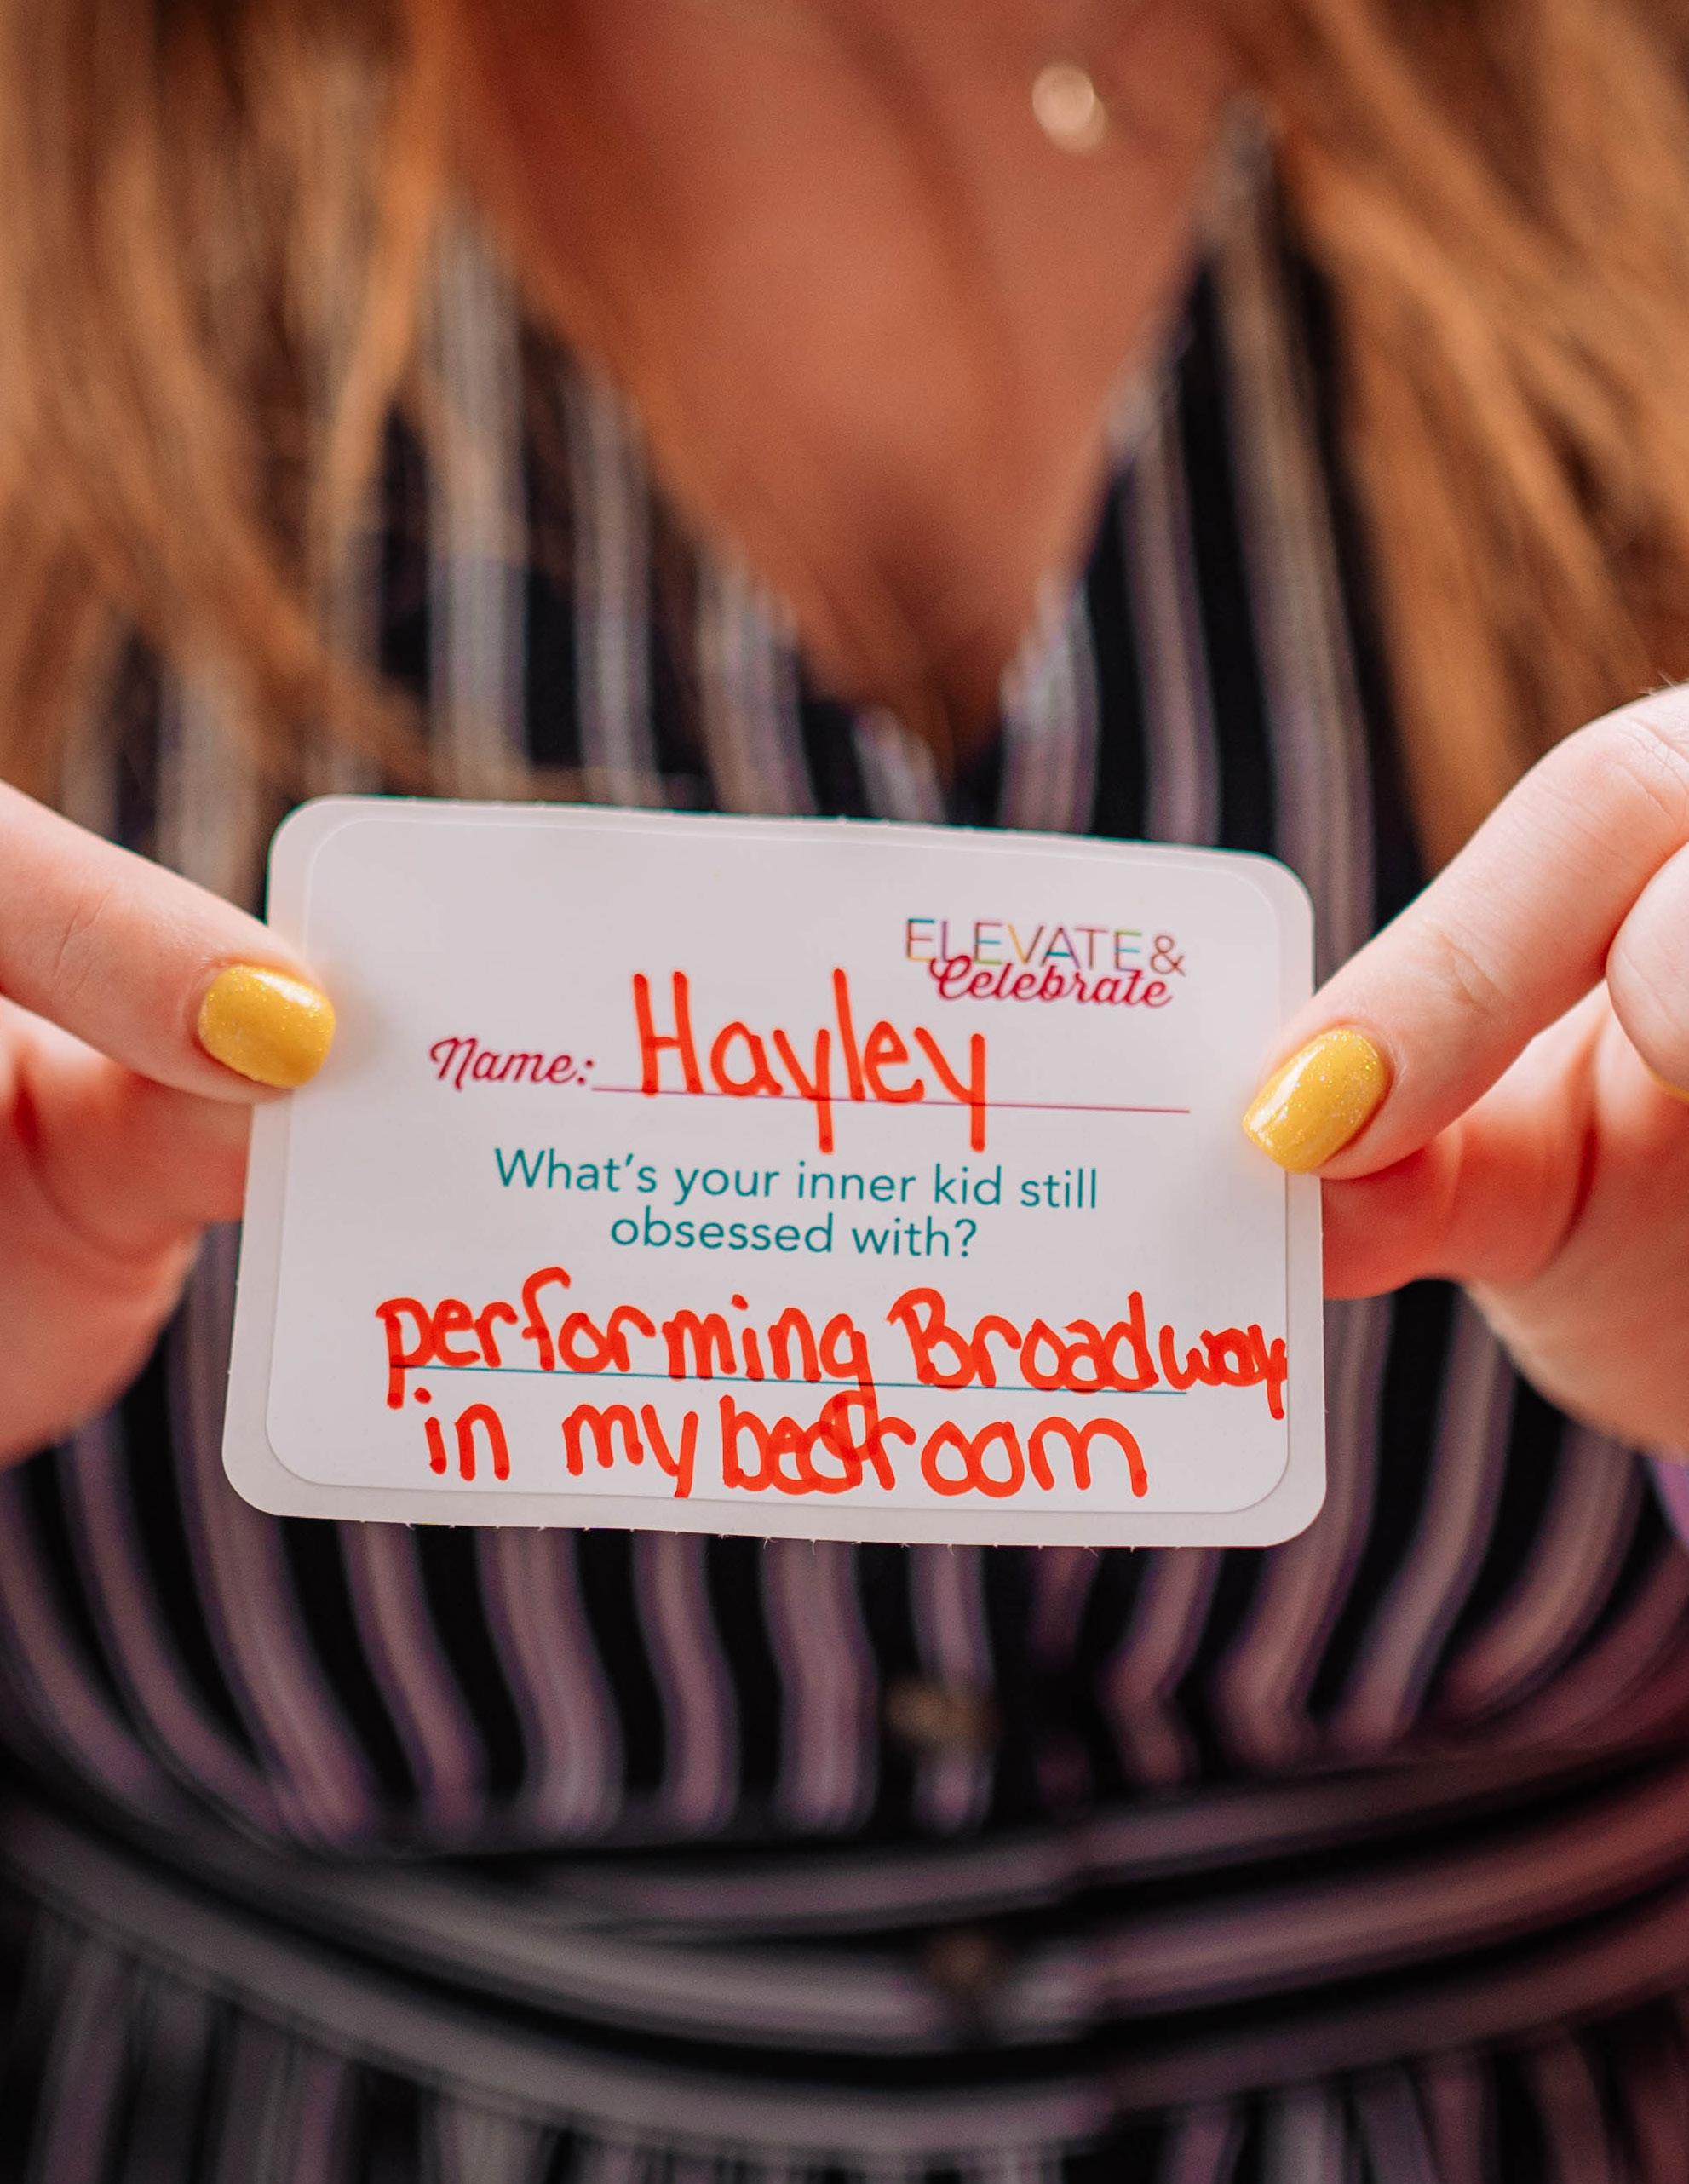 ELEVATE &
Celebrate
Name: Hayley
What's your inner kid still
obsessed with?
performing Broadway
in my bedroom